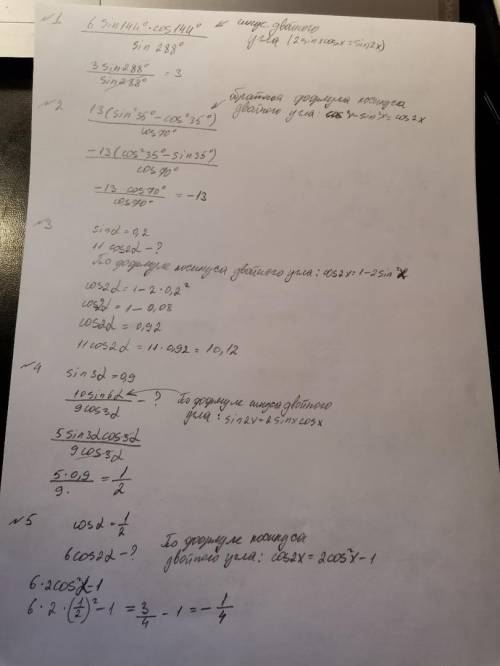 №1
6 sin144° · cos144° / sin 288° синус двойного
угла (2sinxcosx = sin2x)
3 sin288° / sin288° = 3
№2
13(sin²35° - cos²35°) / cos70° формула косинуса
двойного угла: cos²x - sin²x = cos2x
-13(cos²35° - sin35°) / cos70°
-13 · cos70° / cos70° = -13
№3
sinα = 0,2
11 cos2α - ?
По формуле косинуса двойного угла: cos2x = 1 - 2sin²x
cos2α = 1 - 2 · 0,2²
cos2α = 1 - 0,08
cos2α = 0,92
11cos2α = 11 · 0,92 = 10,12
№4
sin3α = 0,9
10sin6α / 9cos3α - ? По формуле синуса двойного
угла: sin2x = 2sinxcosx
5 sin3αcos3α / 9cos3α
5 · 0,9 / 9. = 1/2
№5
cosα = 1/2
6cos2α - ? По формуле косинуса
двойного угла: cos2x = 2cos²x - 1
6 · 2cos²α - 1
6 · 2 · (1/2)² - 1 = 3/4 - 1 = - 1/4